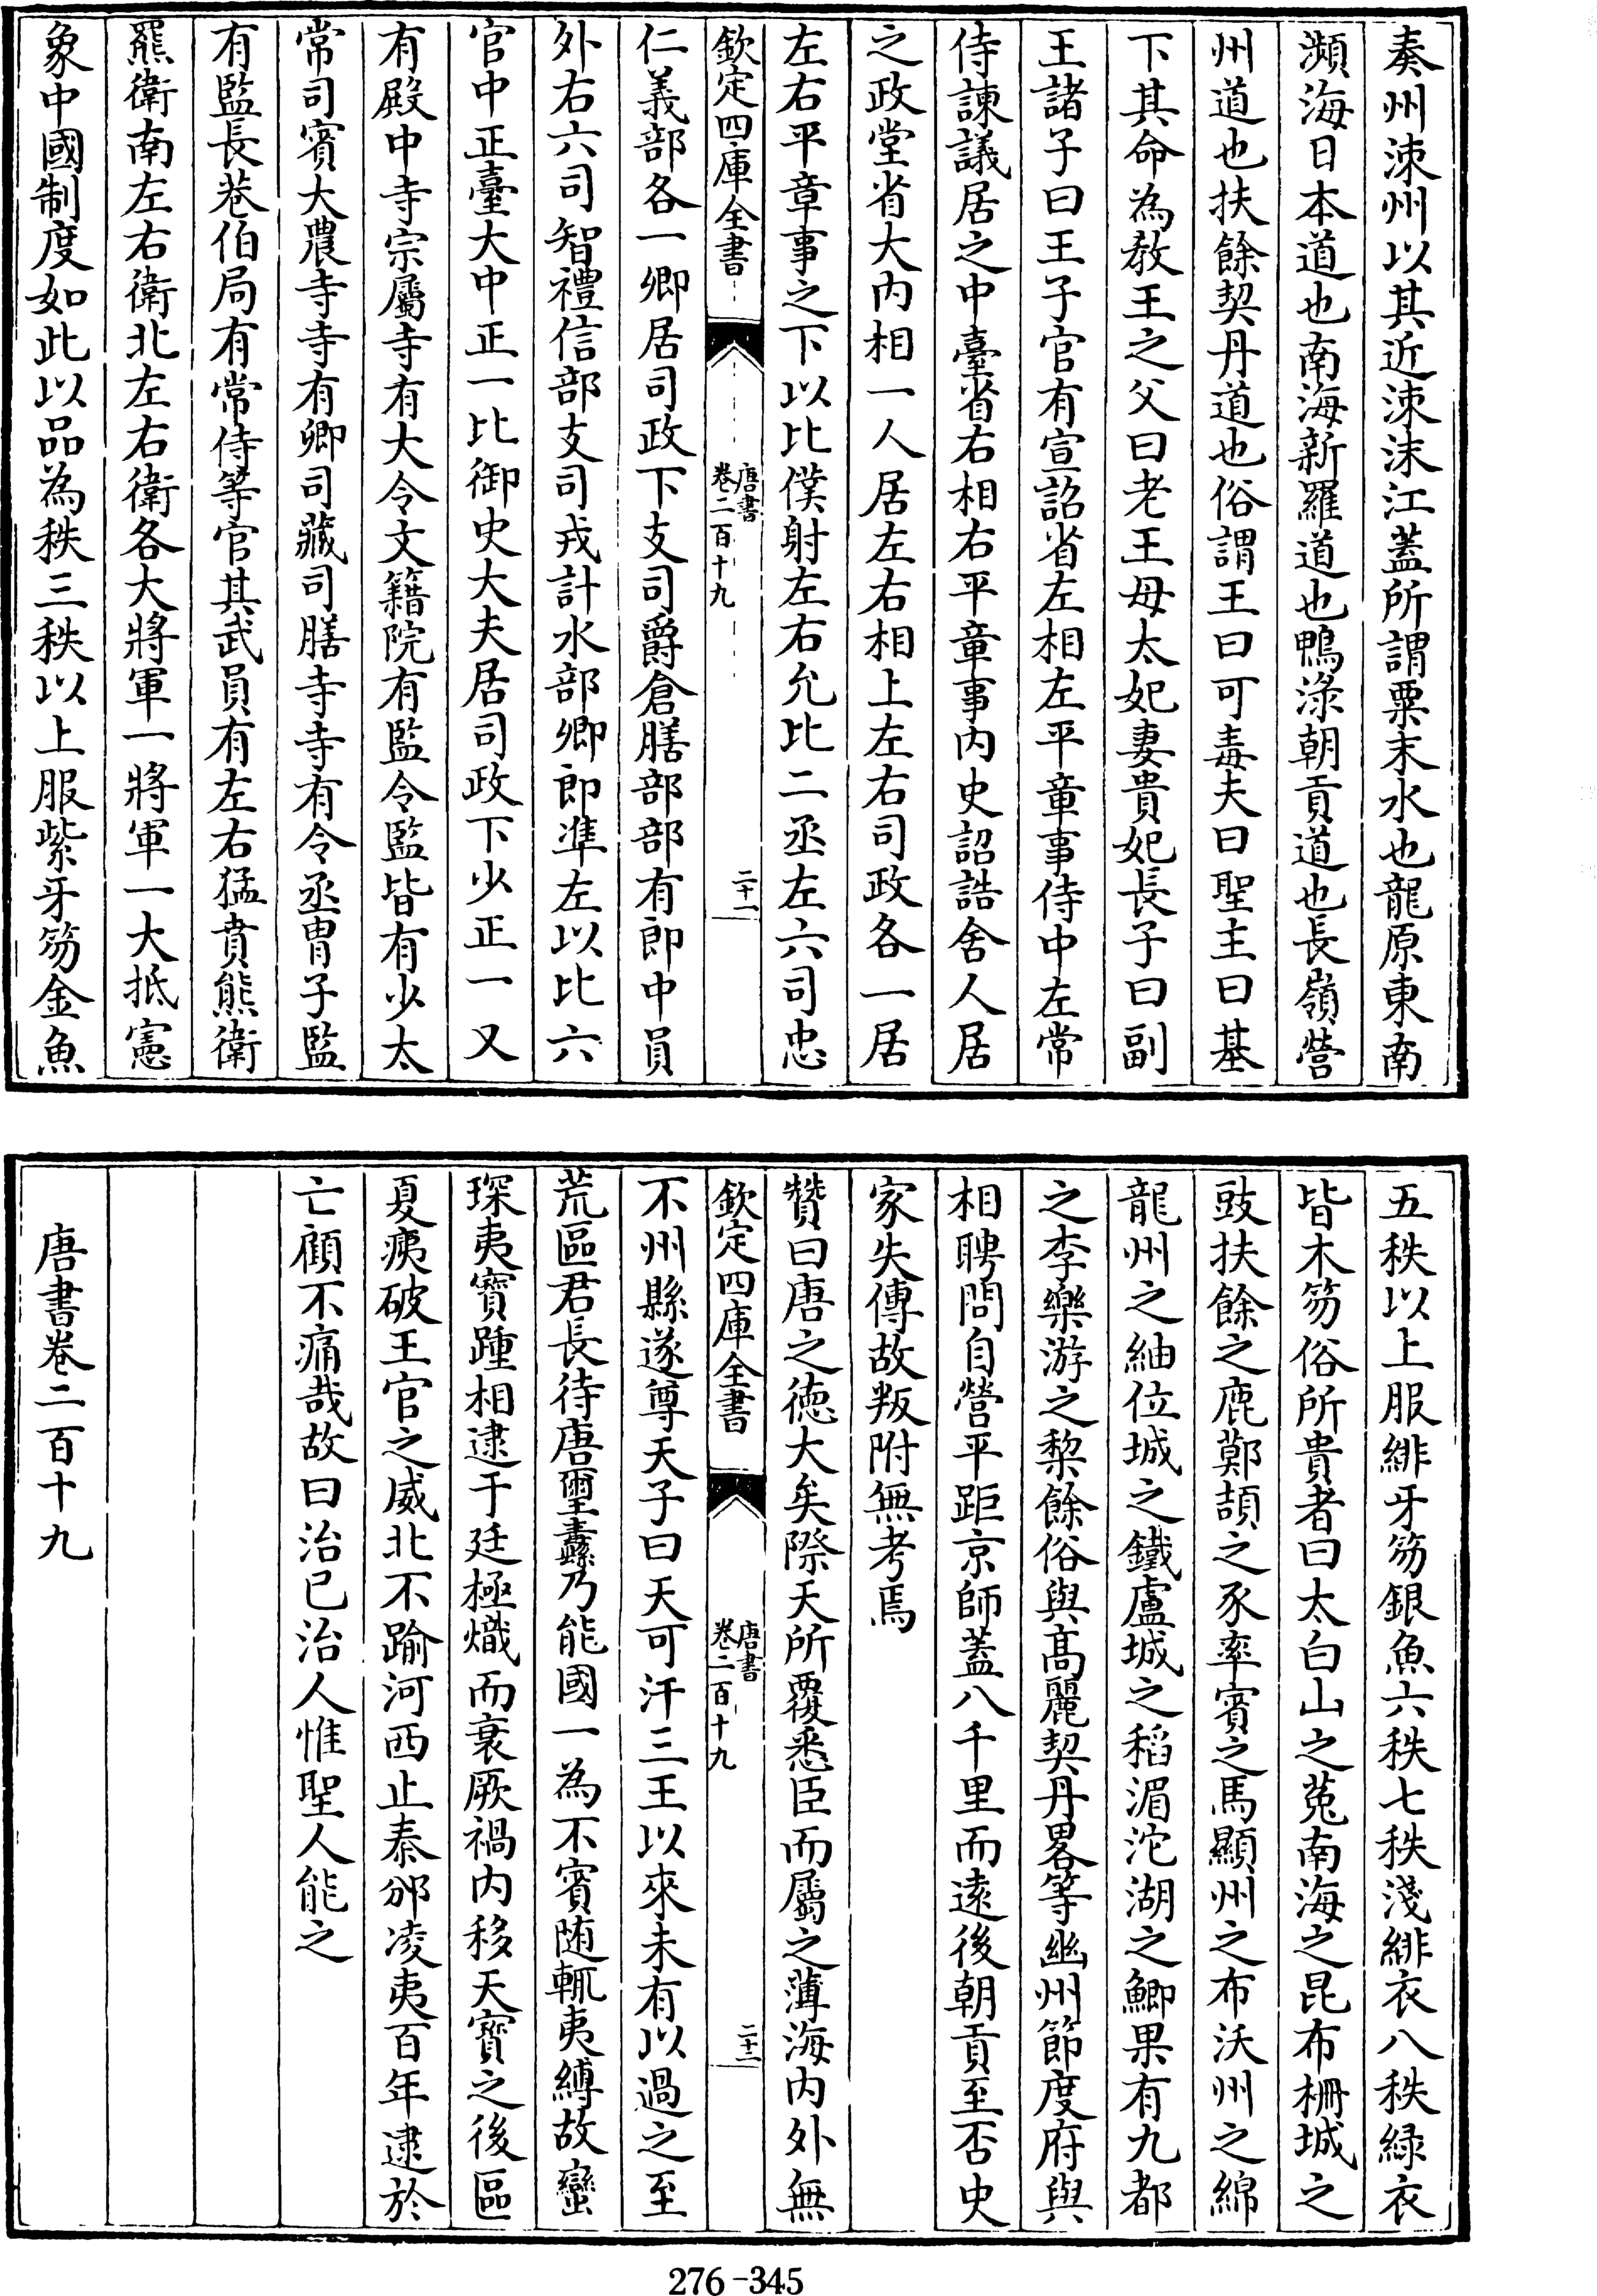 奏州涑州以其近涑沫江蓋所謂粟末水也龍原東南
瀕海日本道也南海新羅道也鴨淥朝貢道也長嶺營
州道也扶餘契丹道也俗謂王曰可毒夫曰聖主曰基
下其命為教王之父曰老王母太妃妻貴妃長子曰副
王諸子曰王子官有宣詔省左相左平章事侍中左常
侍諫議居之中臺省右相右平章事内史詔誥舍人居
之政堂省大内相一人居左右相上左右司政各一居
左右平章事之下以比僕射左右允比二丞左六司忠
欽定四庫全書
唐書
卷二百十九
二十一
仁義部各一卿居司政下支司爵倉膳部部有郎中員
外右六司智禮信部支司戎計水部卿郎準左以比六
官中正臺大中正一比御史大夫居司政下少正一又
有殿中寺宗屬寺有大令文籍院有監令監皆有少太
常司賓大農寺寺有卿司藏司膳寺寺有令丞胄子監
有監長巷伯局有常侍等官其武員有左右猛賁熊衛
羆衛南左右衛北左右衛各大將軍一將軍一大抵憲
象中國制度如此以品為秩三秩以上服紫牙笏金魚
五秩以上服緋牙笏銀魚六秩七秩淺緋衣八秩緑衣
皆木笏俗所貴者曰太白山之菟南海之昆布柵城之
豉扶餘之鹿鄚頡之豕率賓之馬顯州之布沃州之綿
龍州之紬位城之鐵盧城之稻湄沱湖之鯽果有九都
之李樂游之棃餘俗與髙麗契丹畧等幽州節度府與
相聘問自營平距京師蓋八千里而遠後朝貢至否史
家失傳故叛附無考焉
贊曰唐之德大矣際天所覆悉臣而屬之薄海内外無
欽定四庫全書
唐書
卷二百十九
二十二
不州縣遂尊天子曰天可汗三王以來未有以過之至
荒區君長待唐璽纛乃能國一為不賓随輒夷縛故蠻
琛夷寶踵相逮于廷極熾而衰厥禍内移天寶之後區
夏痍破王官之威北不踰河西止秦邠凌夷百年逮於
亡顧不痛哉故曰治已治人惟聖人能之
唐書卷二百十九
276-345